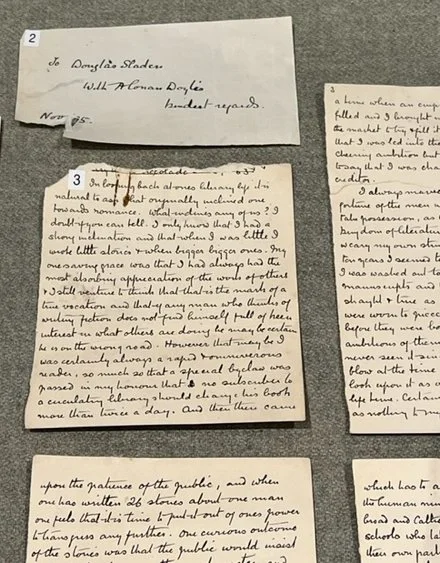 2
To Douglas Sladen
With A Conan Doyle's
kindest regards.
Nov 95.
3
In looking back at ones literary life it is
natural to ask what originally inclined one
towards romance. What inclines any of us? I
doubt if you can tell. I only know that I had a
strong inclination and that when I was little I
wrote little stories & when bigger bigger ones. My
one saving grace was that I had always had the
most absorbing appreciation of the work of others
& I still venture to think that that is the mark of a
true vocation and that if any man who thinks of
writing fiction does not find himself full of keen
interest in what others are doing he may be certain
he is on the wrong road. However that may be I
was certainly always a rapid & omnivorous
reader, so much so that a special byelaw was
passed in my honour that no subscriber to
a circulating library should change his book
more than twice a day. And then there came
upon the patience of the public, and when
one has written 26 stories about one man
one feels that it is time to put it out of ones power
to transgress any further. One curious outcome
of the stories was that the public would insist
3
a time when an emp
filled and I brought
the market to try
that I was led into the
cheering ambition but
today that I was
creditor.
I always marvel
fortune of the men
take possession, as
kingdom of literature
weary my own
ten years I seemed to
I was washed out
manuscripts and
straight & true as
were worn to
before they were
ambitions of them
never seen
blow at the time
look upon it as
life time. Certain
as nothing to m
which has to a
the human min
broad and Catho
schools who la
then own part